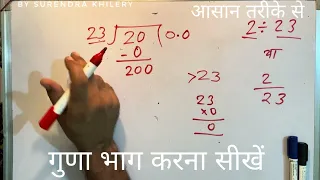 BY SURENDRA KHILERY
आसान तरीके से
23 ) 20 ( 0.0
- 0
200
2 ÷ 23
या
2
23
>23
23
x0
0
गुणा भाग करना सीखें